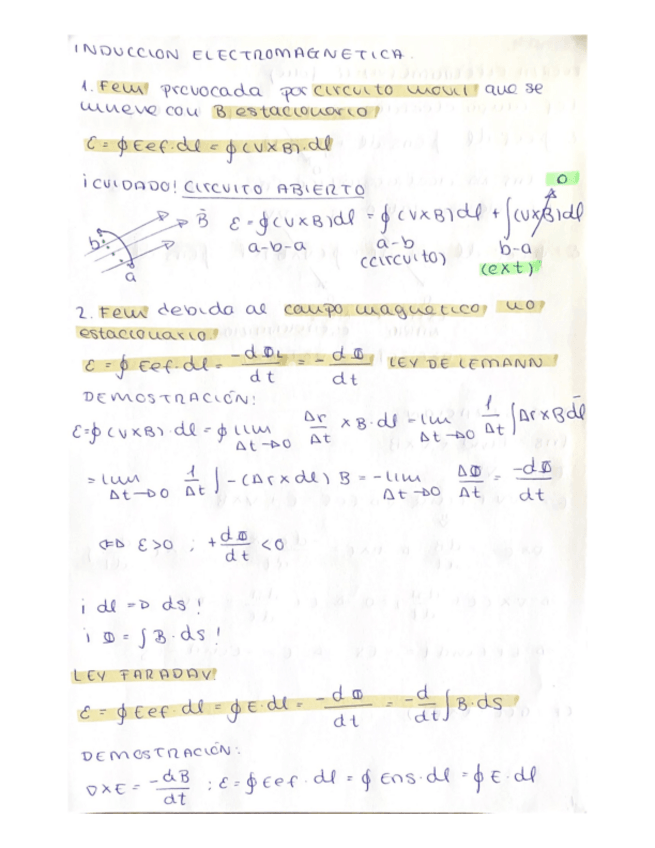 INDUCCION ELECTROMAGNETICA.
1. Fem provocada por circuito movil que se
mueve con B estacionario
ε = ∮ Eef·dl = ∮ (v×B)·dl
¡CUIDADO! CIRCUITO ABIERTO
0
B ε = ∮(v×B)dl = ∮(v×B)dl + ∫(v×B)dl
b a-b-a a-b b-a
a (circuito) (ext)
2. Fem debida al campo magnetico no
estacionario
ε = ∮ Eef·dl = -dΦ/dt = -dΦ/dt LEY DE LEMANN
DEMOSTRACIÓN:
ε = ∮(v×B)·dl = ∮ lim Δt→0 Δr/Δt ×B·dl = lim Δt→0 1/Δt ∫Δr×B dl
= lim Δt→0 1/Δt ∫-(Δr×dl) B = -lim Δt→0 ΔΦ/Δt = -dΦ/dt
⇔ ε>0 ; +dΦ/dt <0
¡ dl ⇒ ds !
¡ Φ = ∫B·ds !
LEY FARADAY
ε = ∮Eef·dl = ∮E·dl = -dΦ/dt = -d/dt ∫B·ds
DEMOSTRACIÓN:
∇×E = -dB/dt ; ε = ∮Eef·dl = ∮Ens·dl = ∮E·dl